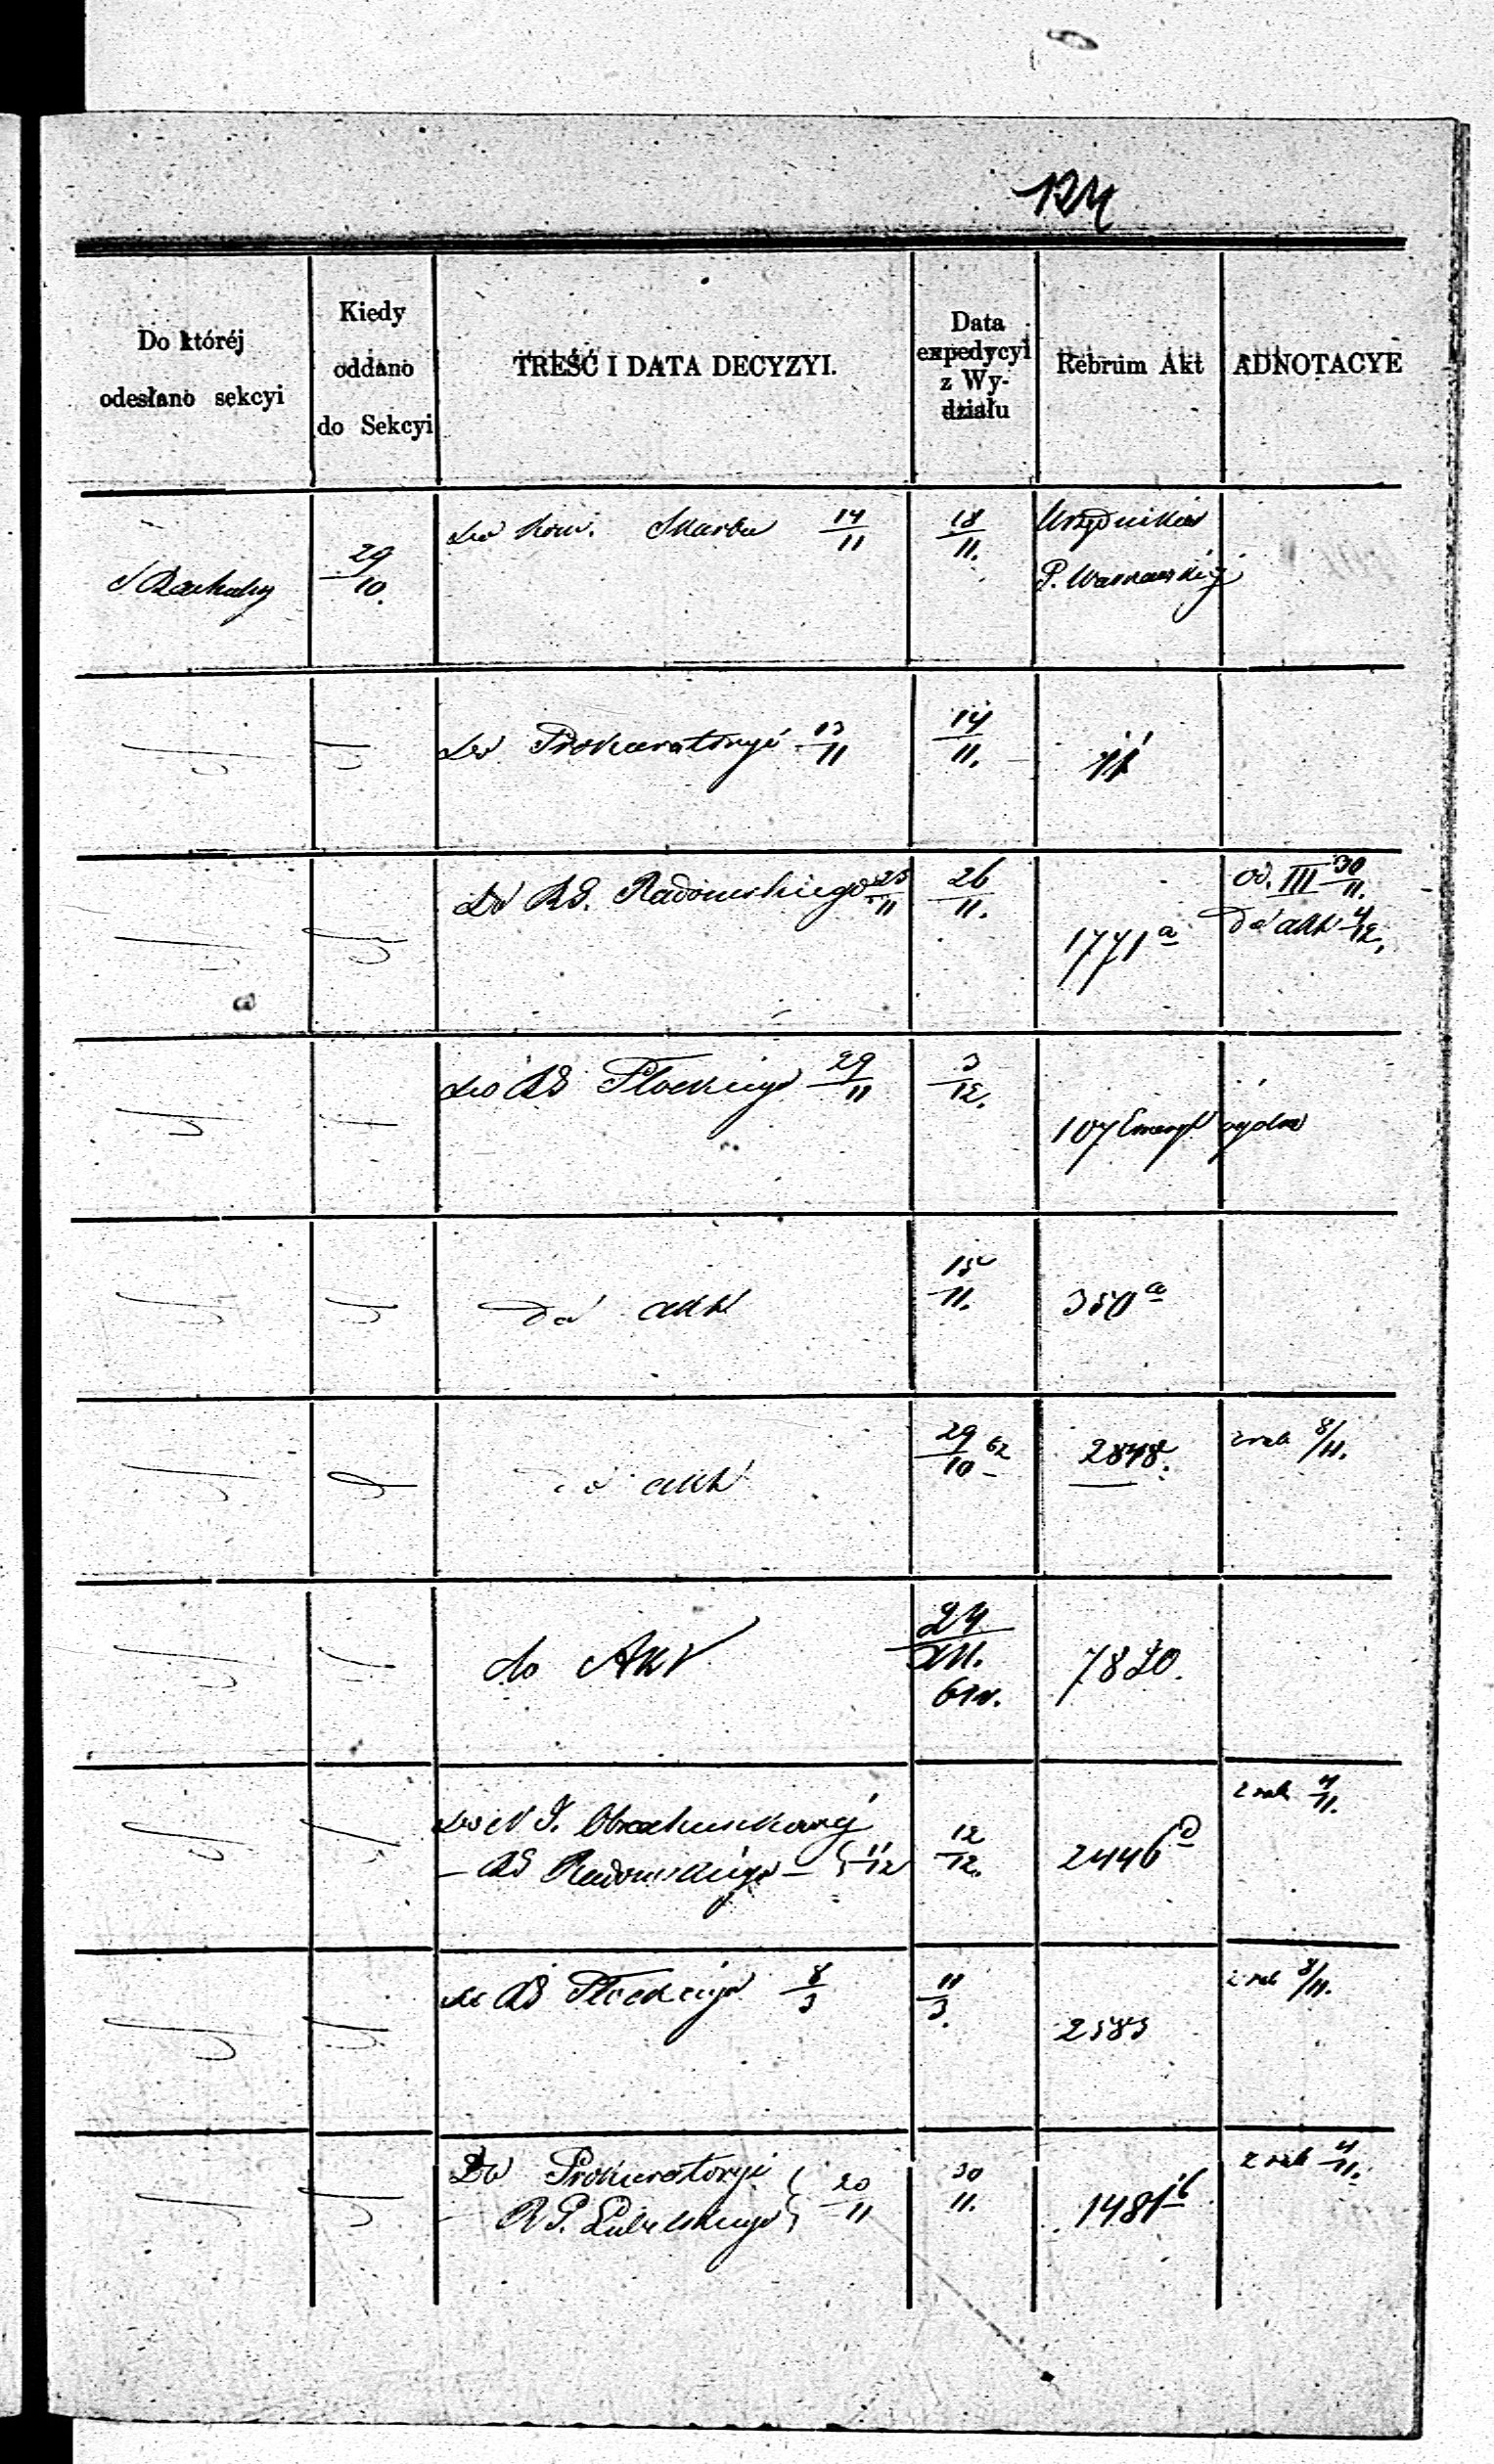 124
Do któréj
odesłano sekcyi
Kiedy
oddano
do Sekcyi
TREŚĆ I DATA DECYZYI.
Data
expedycyi
z Wy-
działu
Rebrum Akt
ADNOTACYE
29/10.
do Kom. Skarbu 14/11
18/11.
Urzędników
P. Warszawskiéj
do Prokuratoryi 13/11
14/11.
Do RG. Radomskiego 25/11
26/11.
1771 a
od. III 30/11.
do akt 4/12.
do RG Płockiego 29/11
3/12.
107 Emeryt
do akt
15/11.
350 a
do akt
29/10 62
2848.
z rub 8/11.
do Akt
24/XII.
7820.
do N I. Obrachunkowéj
- RG Radomskiego - 11/12
12/12.
2446 d
z rub 4/11.
do RG Płockiego 8/3
11/3.
2585
z rub 8/11.
Do Prokuratoryi
RG. Lubelskiego 20/11
30/11.
1481 b
z rub 4/11.